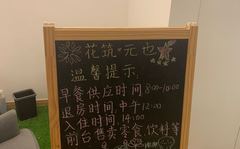 花筑·元也
温馨提示
早餐供应时间8:00-10:00
退房时间,中午12:00
入住时间,14:00
前台售卖零食饮料等